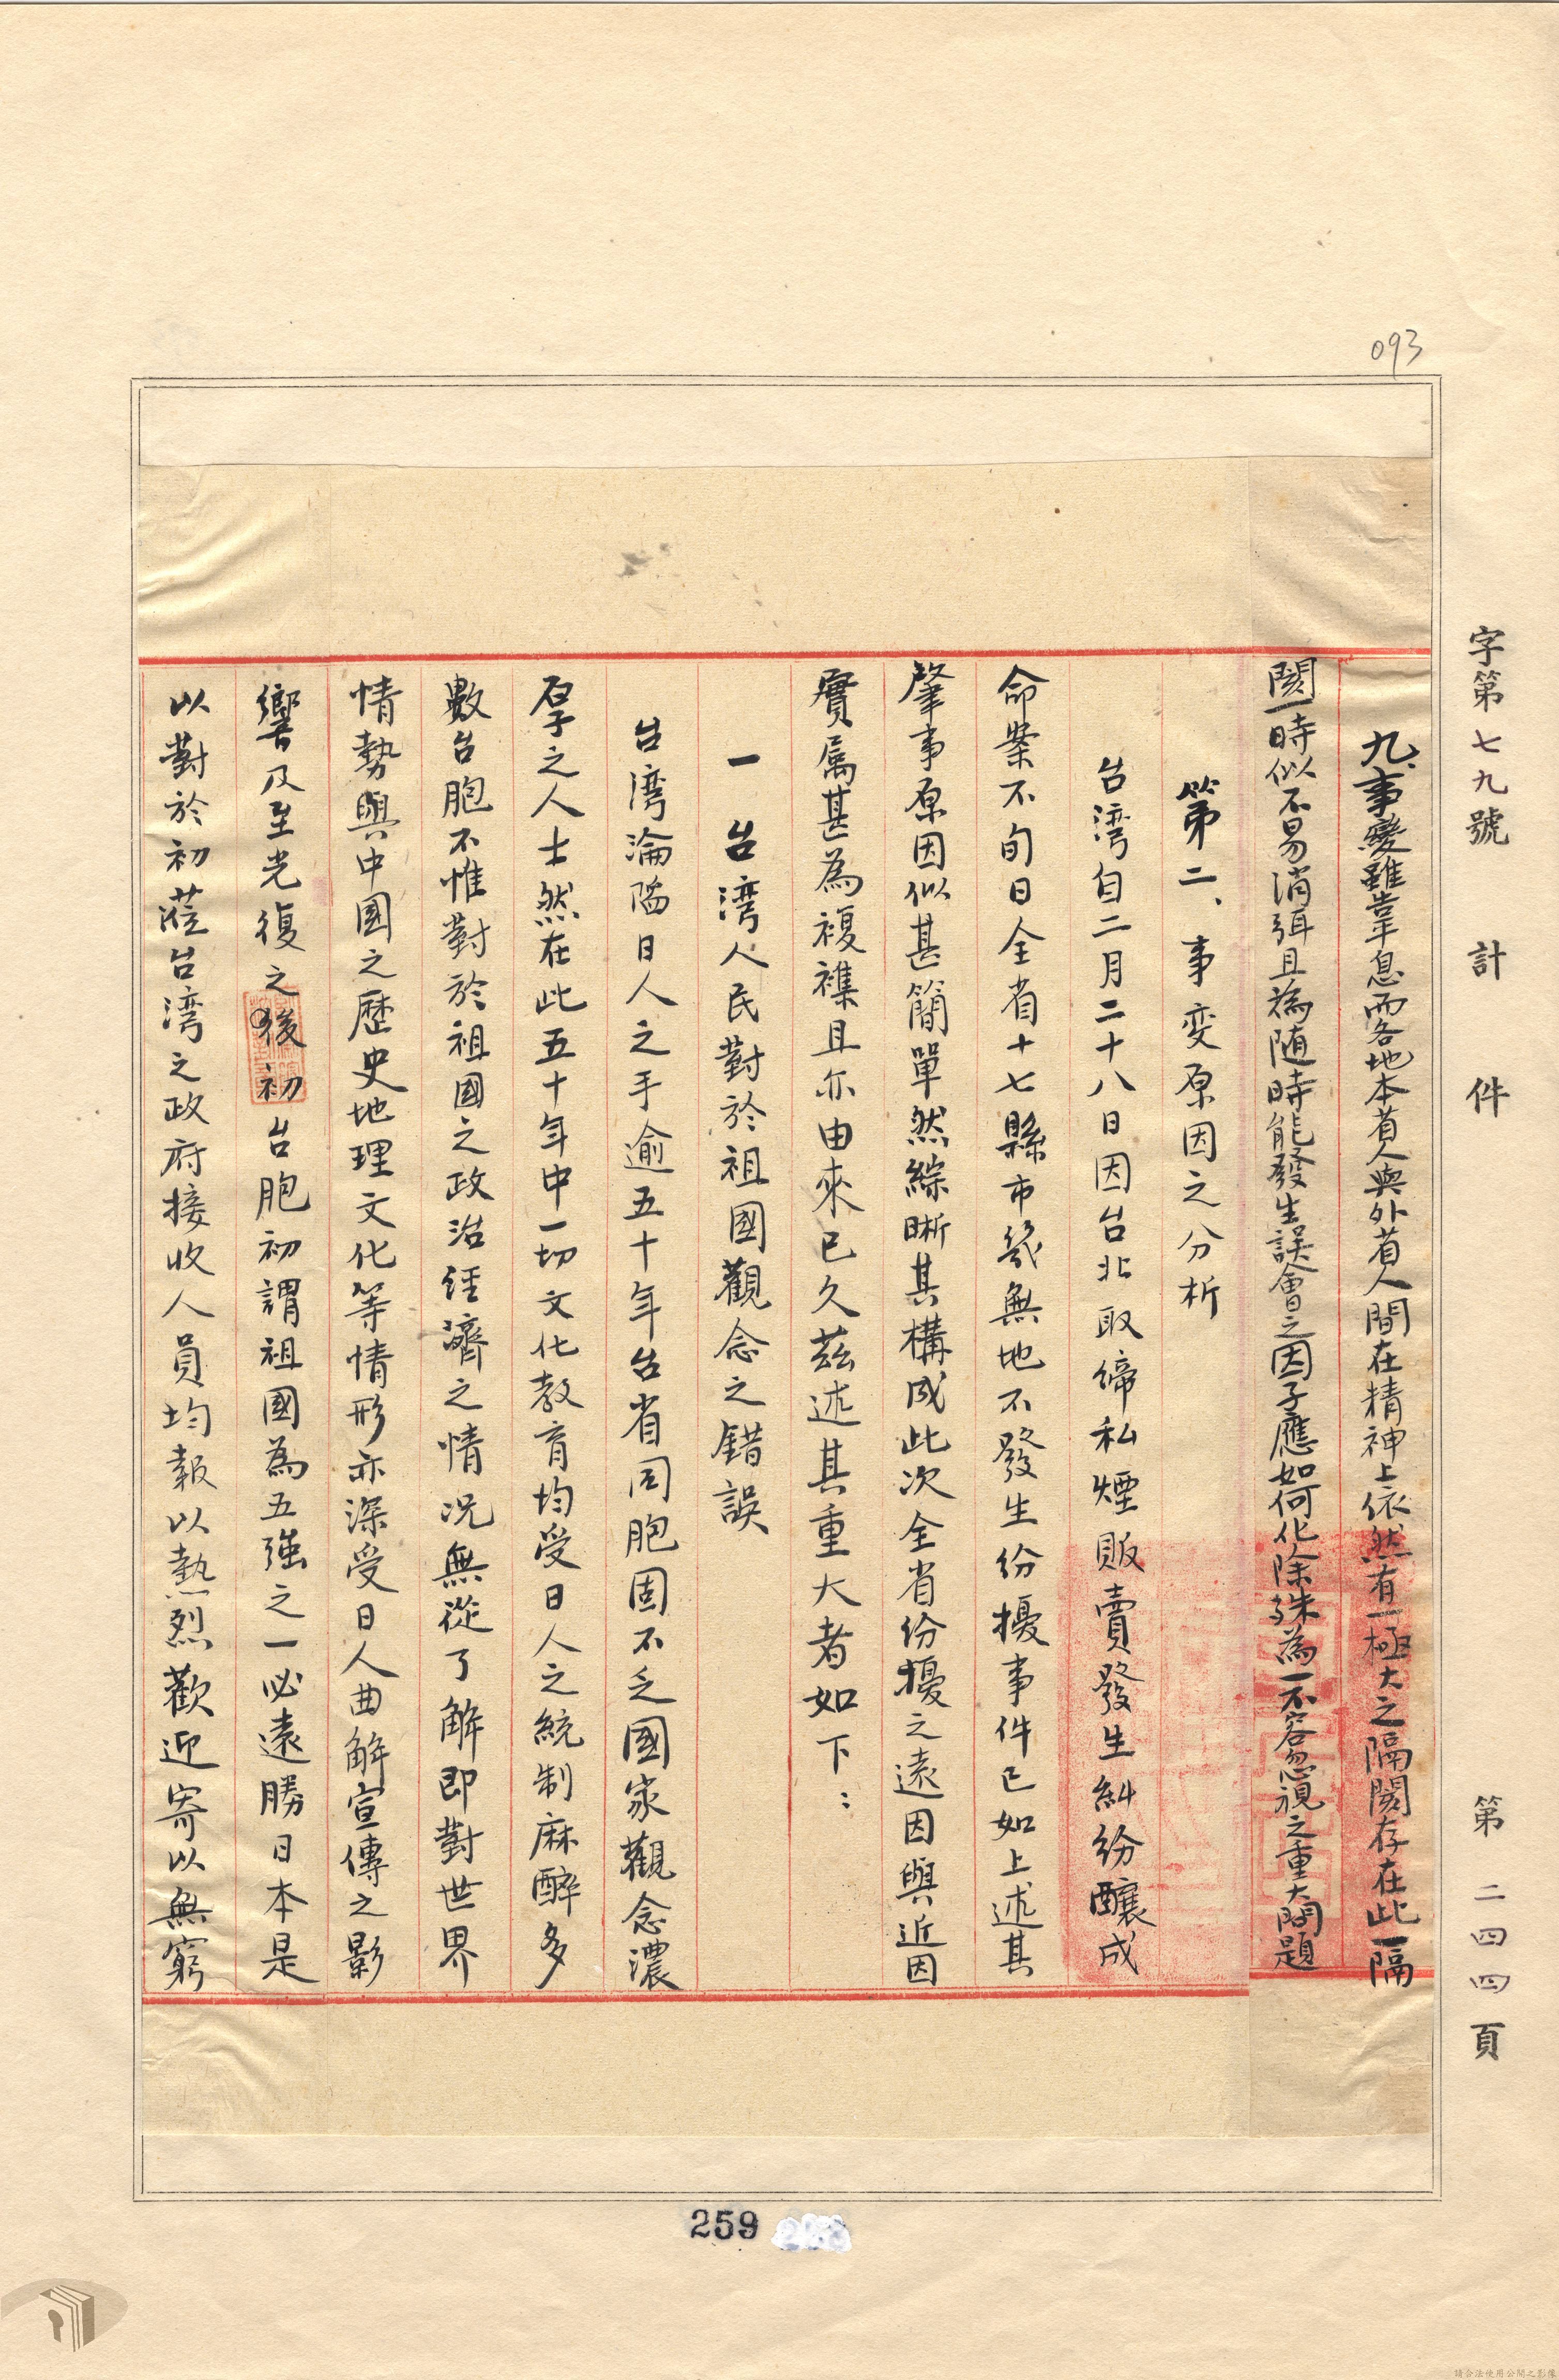 093
字第七九號 計 件 第二四四頁
九、事變雖韋息而各地本省人與外省人間在精神上依然有一極大之隔閡存在此一隔
閡一時似不易消弭且為随時能發生誤會之因子應如何化除殊為一不容忽視之重大問題
第二、事変原因之分析
台湾自二月二十八日因台北取締私煙販賣發生糾紛釀成
命案不旬日全省十七縣市幾無地不發生份擾事件已如上述其
肇事原因似甚簡單然綜晰其構成此次全省份擾之遠因與近因
實属甚為複襍且亦由來已久茲述其重大者如下：
一 台湾人民對於祖國觀念之錯誤
台湾淪陷日人之手逾五十年台省同胞固不乏國家觀念濃
厚之人士然在此五十年中一切文化教育均受日人之統制麻醉多
數台胞不惟對於祖國之政治経濟之情况無從了解即對世界
情勢與中國之歷史地理文化等情形亦深受日人曲解宣傳之影
響及至光復之後初台胞初謂祖國為五強之一必遠勝日本是
以對於初蒞台湾之政府接收人員均報以熱烈歡迎寄以無窮
259
請合法使用公開之影像